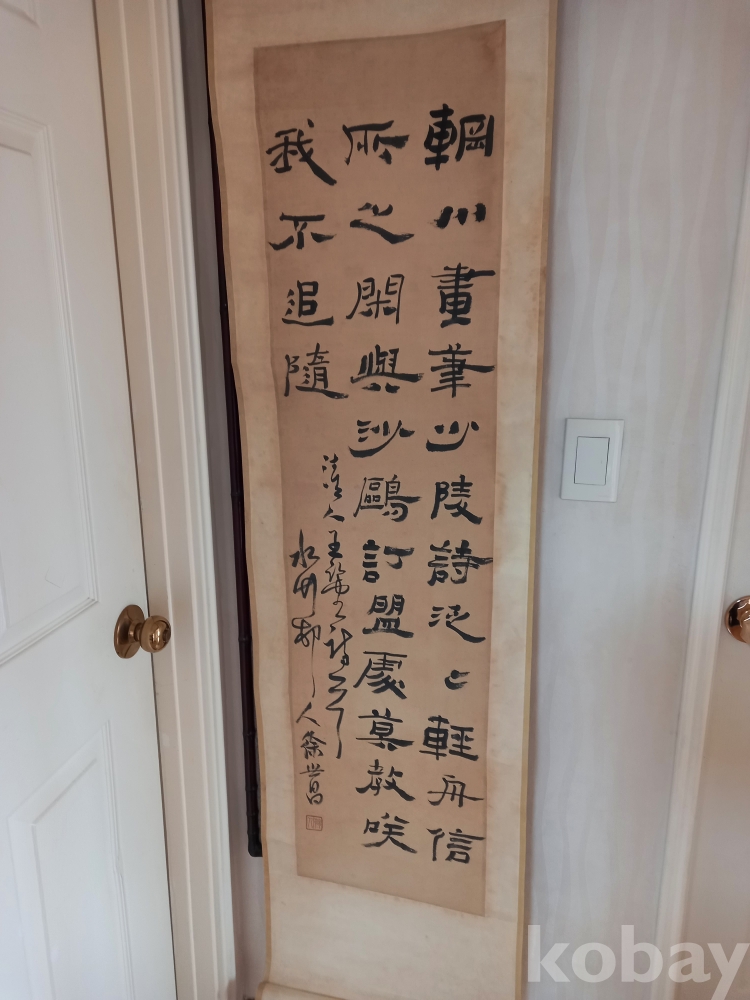 輞川畫筆少陵詩泛〻輕舟信
所之閑與沙鷗訂盟處莫教咲
我不追隨
清人王
水竹邨人徐世昌
kobay